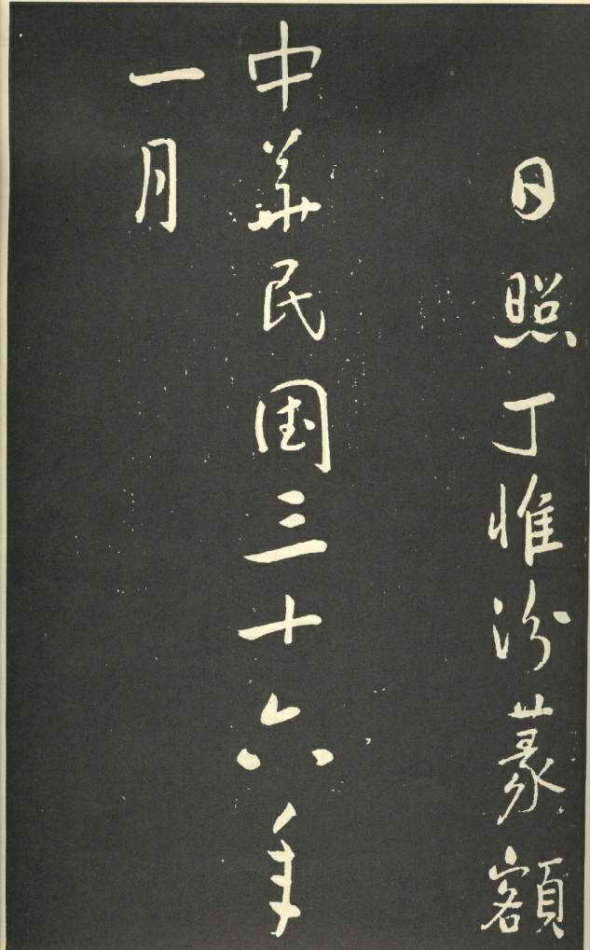 日照丁惟汾篆額
中華民国三十六年
一月